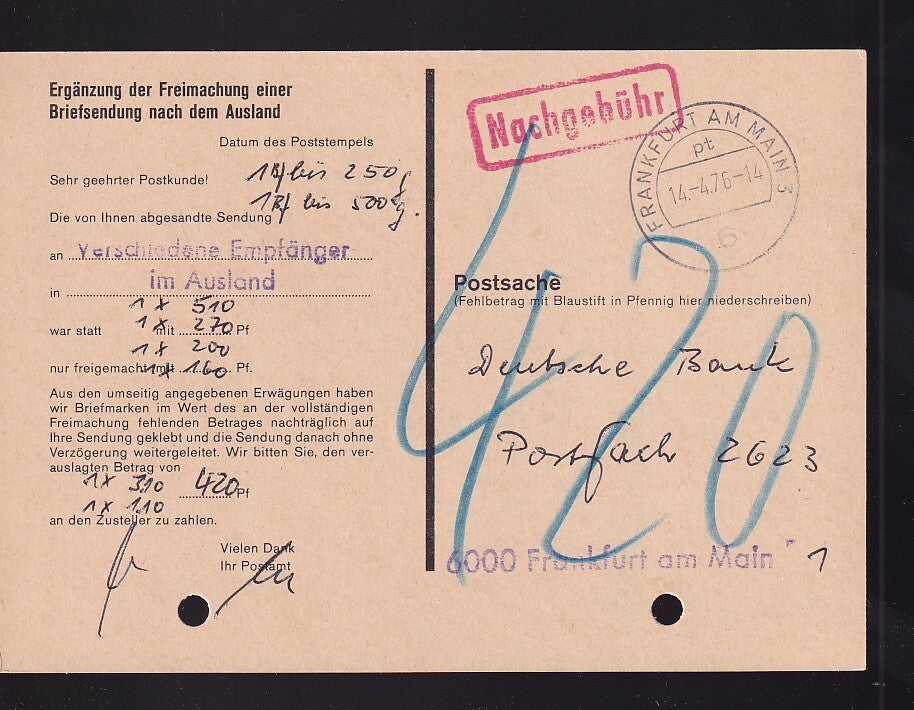 Ergänzung der Freimachung einer
Briefsendung nach dem Ausland
Datum des Poststempels
Sehr geehrter Postkunde!
1 Bf bis 250 g
1 Bf bis 500 g.
Die von Ihnen abgesandte Sendung
an Verschiedene Empfänger
im Ausland
in
1 x 510
war statt 1 x mit 270 Pf
1 x 200
nur freigemacht mit 1 x 160 Pf.
Aus den umseitig angegebenen Erwägungen haben
wir Briefmarken im Wert des an der vollständigen
Freimachung fehlenden Betrages nachträglich auf
Ihre Sendung geklebt und die Sendung danach ohne
Verzögerung weitergeleitet. Wir bitten Sie, den ver-
auslagten Betrag von
1 x 310 420 Pf
1 x 110
an den Zusteller zu zahlen.
Vielen Dank
Ihr Postamt
Nachgebühr
FRANKFURT AM MAIN 3
pt
14.-4.76-14
6
420
Postsache
(Fehlbetrag mit Blaustift in Pfennig hier niederschreiben)
Deutsche Bank
Postfach 2623
6000 Frankfurt am Main 1